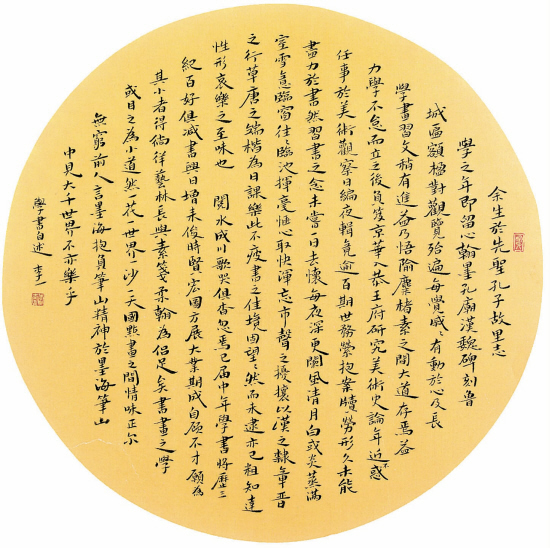 余生於先聖孔子故里志
學之年即留心翰墨孔廟漢魏碑刻魯
城區額楹對觀覽殆遍每覺戚戚有動於心及長
學畫習文稍有進益乃悟隃麋楮素之間大道存焉益
力學不怠而立之後負笈京華入恭王府研究美術史論年近不惑
任事於美術觀察日編夜輯竟逾百期世務縈抱案牘勞形久未能
盡力於書然習書之念未嘗一日去懷每夜深更闌風清月白或炎蒸滿
室雪意臨窗往往臨池揮毫惟心取快渾忘市聲之擾攘以漢之隸章晉
之行草唐之端楷為日課樂此不疲書之佳境固望望然而未逮亦已粗知達
性形哀樂之至味也 閱水成川歌哭俱杳忽焉已屆中年學書將歷三
紀百好俱減書興日增未俊時賢宏圖方展大業期成自顧不才願為
其小者得徜徉藝林長與素箋柔翰為侶足矣書畫之學
或目之為小道然一花一世界一沙一天國點畫之間情味正尔
無窮前人言墨海抱負筆山精神於墨海筆山
中見大千世界不亦樂乎
學書自述 李一